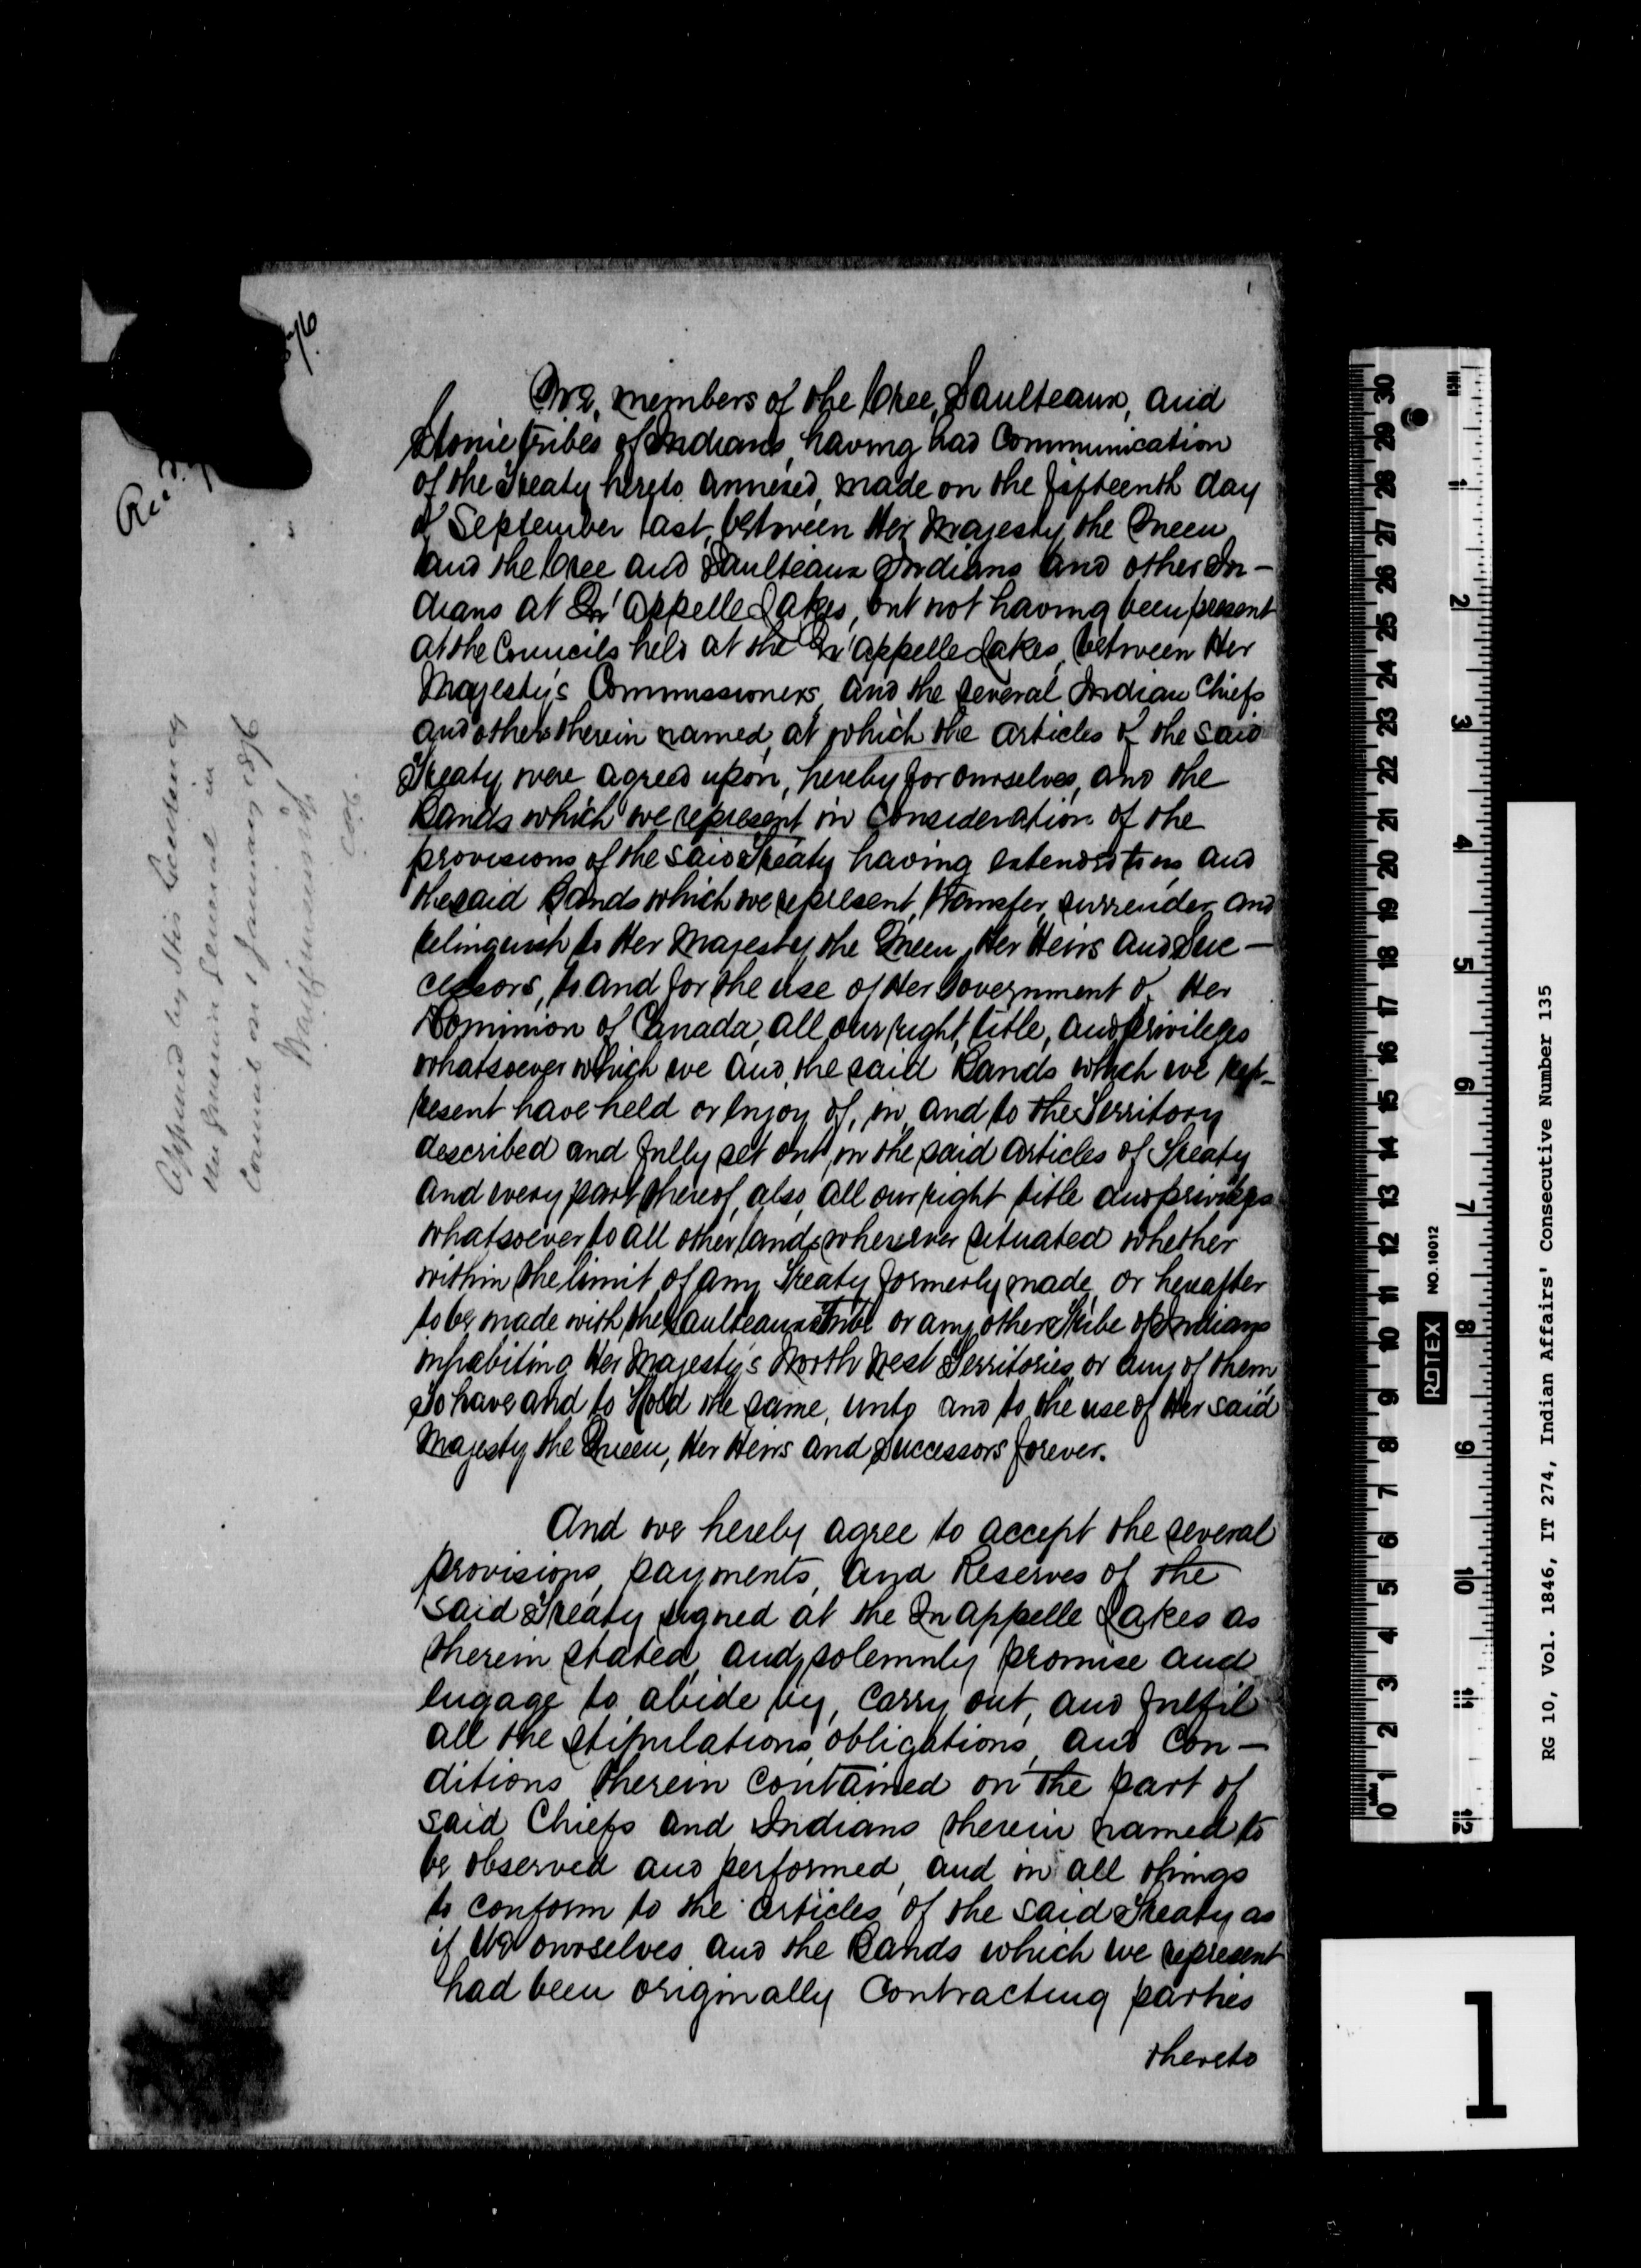 We, members of the Cree, Saulteaux, and
Stonie tribes of Indians, having had communication
of the Treaty hereto annexed, made on the fifteenth day
of September last, between Her Majesty the Queen
and the Cree and Saulteaux Indians and other In-
dians at Qu'appelle Lakes, but not having been present
at the Councils held at the Qu'appelle Lakes, between Her
Majesty's Commissioners, and the several Indian Chiefs
and others therein named, at which the articles of the said
Treaty were agreed upon, hereby for ourselves, and the
Bands which we represent in consideration of the
provisions of the said Treaty having extended to us and
the said Bands which we represent, transfer, surrender, and
relinquish to Her Majesty the Queen, Her Heirs and Suc-
cessors, to and for the use of Her Government of Her
Dominion of Canada, all our right, title, and privileges
whatsoever which we and the said Bands which we rep-
resent have held or enjoy of, in, and to the Territory
described and fully set out in the said articles of Treaty
and every part thereof, also, all our right title and privileges
whatsoever to all other lands wherever situated whether
within the limit of any Treaty formerly made, or hereafter
to be made with the Saulteaux Tribe or any other Tribe of Indians
inhabiting Her Majesty's North West Territories, or any of them,
To have and to Hold the same, unto and to the use of Her said
Majesty the Queen, Her Heirs and Successors forever.
And we hereby agree to accept the several
provisions, payments, and Reserves of the
said Treaty signed at the Qu'appelle Lakes as
therein stated, and solemnly promise and
engage to abide by, carry out, and fulfil
all the stipulations, obligations, and con-
ditions therein contained on the part of
said Chiefs and Indians therein named to
be observed and performed, and in all things
to conform to the articles of the said Treaty as
if We ourselves and the Bands which we represent
had been originally Contracting parties
thereto
Approved by His Excellency
the Governor General in
Council on 1 January 1876
C.O.C.
1
ROTEX NO. 10012
RG 10, Vol. 1846, IT 274, Indian Affairs' Consecutive Number 135
1